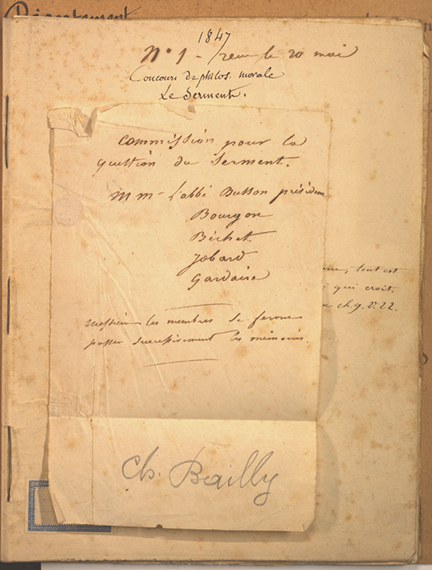 Département
1847
N° 1 - reçu le 20 mai
Concours de philos. morale
Le Serment.
Commission pour la
question du Serment.
MM - l'abbé Busson président
Bourgon
Béchet
Jobard
Gardaire
Messieurs les membres se feront
passer successivement les mémoires
tout est
qui croit.
ch. 9. v. 22.
Ch. Bailly